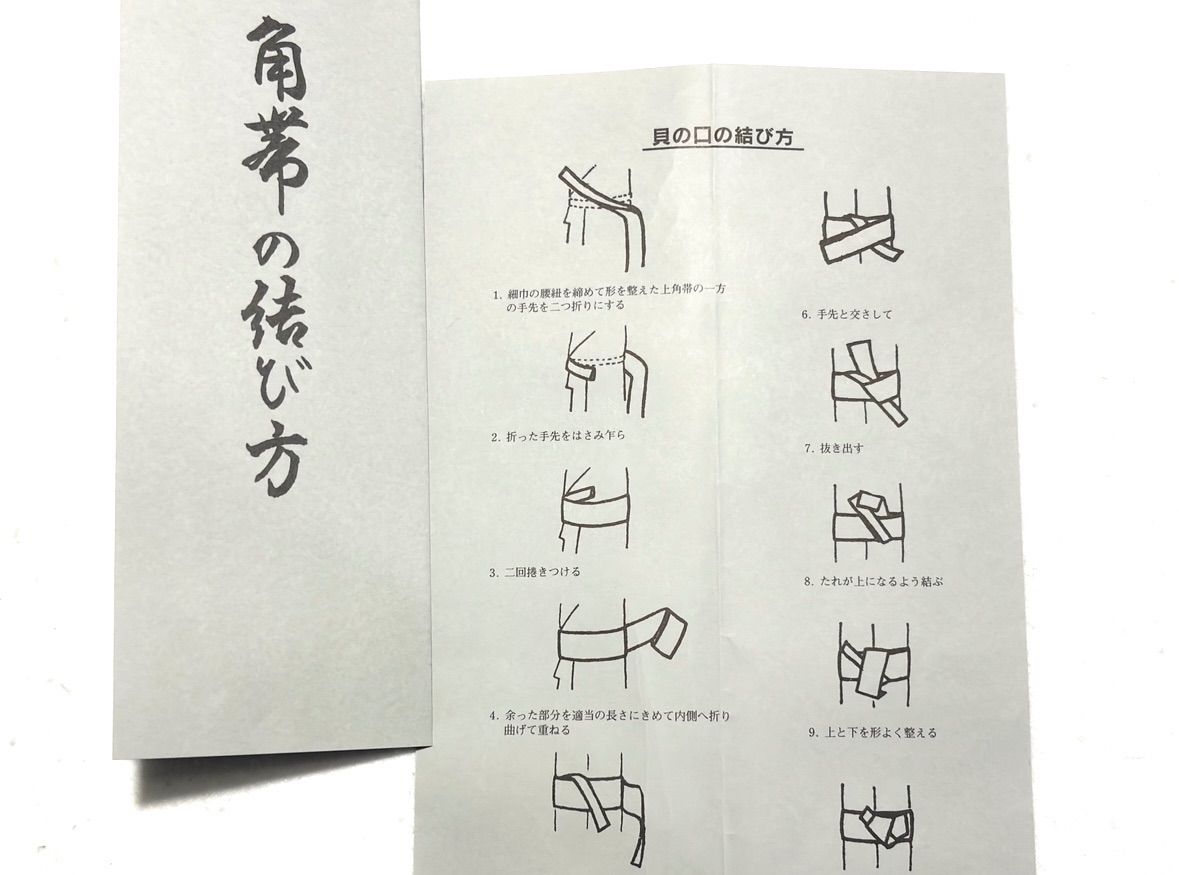 角帯の結び方
貝の口の結び方
1. 細巾の腰紐を締めて形を整えた上角帯の一方
の手先を二つ折りにする
2. 折った手先をはさみ乍ら
3. 二回捲きつける
4. 余った部分を適当の長さにきめて内側へ折り
曲げて重ねる
6. 手先と交さして
7. 抜き出す
8. たれが上になるよう結ぶ
9. 上と下を形よく整える